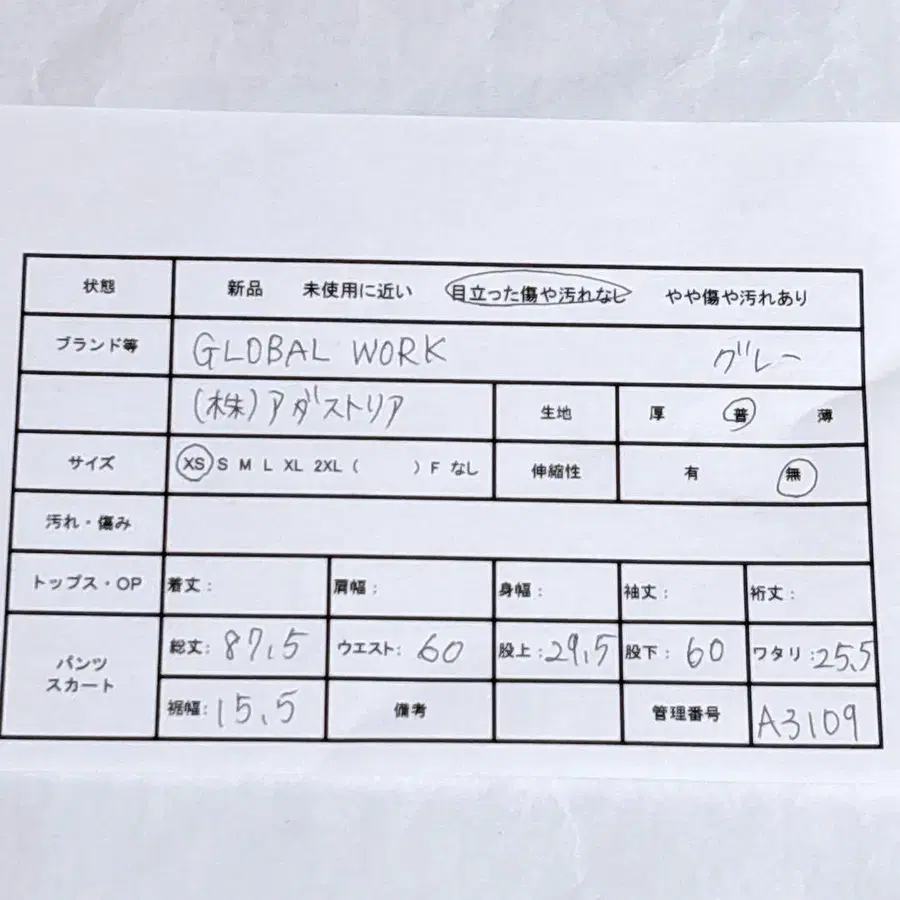 状態 新品 未使用に近い 目立った傷や汚れなし やや傷や汚れあり
ブランド等 GLOBAL WORK グレー
(株)アダストリア 生地 厚 普 薄
サイズ XS S M L XL 2XL ( ) F なし 伸縮性 有 無
汚れ・傷み
トップス・OP 着丈: 肩幅: 身幅: 袖丈: 裄丈:
パンツ スカート 総丈: 87.5 ウエスト: 60 股上: 29.5 股下: 60 ワタリ: 25.5
裾幅: 15.5 備考 管理番号 A3109